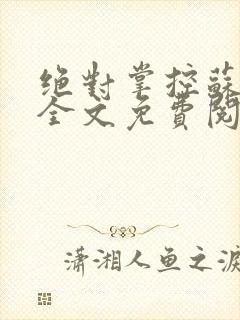 绝對掌控蘇
全文免費閱
瀟湘人鱼之淚